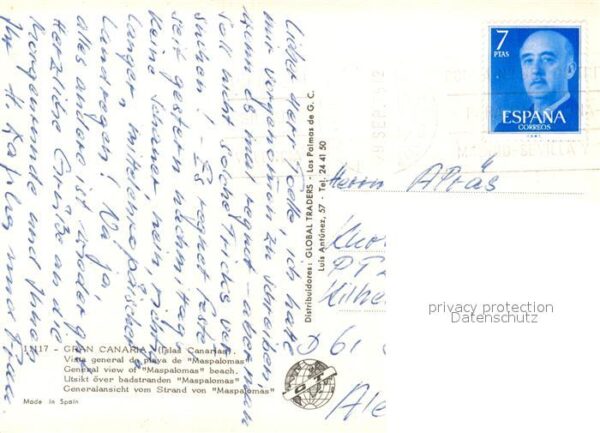 Lieber Herr Pölte, ich hatte
mir vorgenommen zu schreiben,
wenn es mal regnet - aber man
soll nicht solche Tricks ver-
suchen! - Es regnet feste
seit gestern nachmittag,
keine Schauer nein, richt.
langer, mitteleuropäischer
Landregen! Na ja,
alles andere ist wieder gut
Herzliche Grüße an die
Morgenrunde und Ihnen
Ihr H. und Frau
11117 - GRAN CANARIA (Islas Canarias).
Vista general de playa de "Maspalomas"
General view of "Maspalomas" beach.
Utsikt över badstranden "Maspalomas"
Generalansicht vom Strand von "Maspalomas"
Made in Spain
Distribuidores: GLOBAL TRADERS - Las Palmas de G. C.
Luis Antúnez, 57 - Tel: 24 41 50
7
PTAS
ESPAÑA
CORREOS
SEP.
Herrn
D 61
privacy protection
Datenschutz